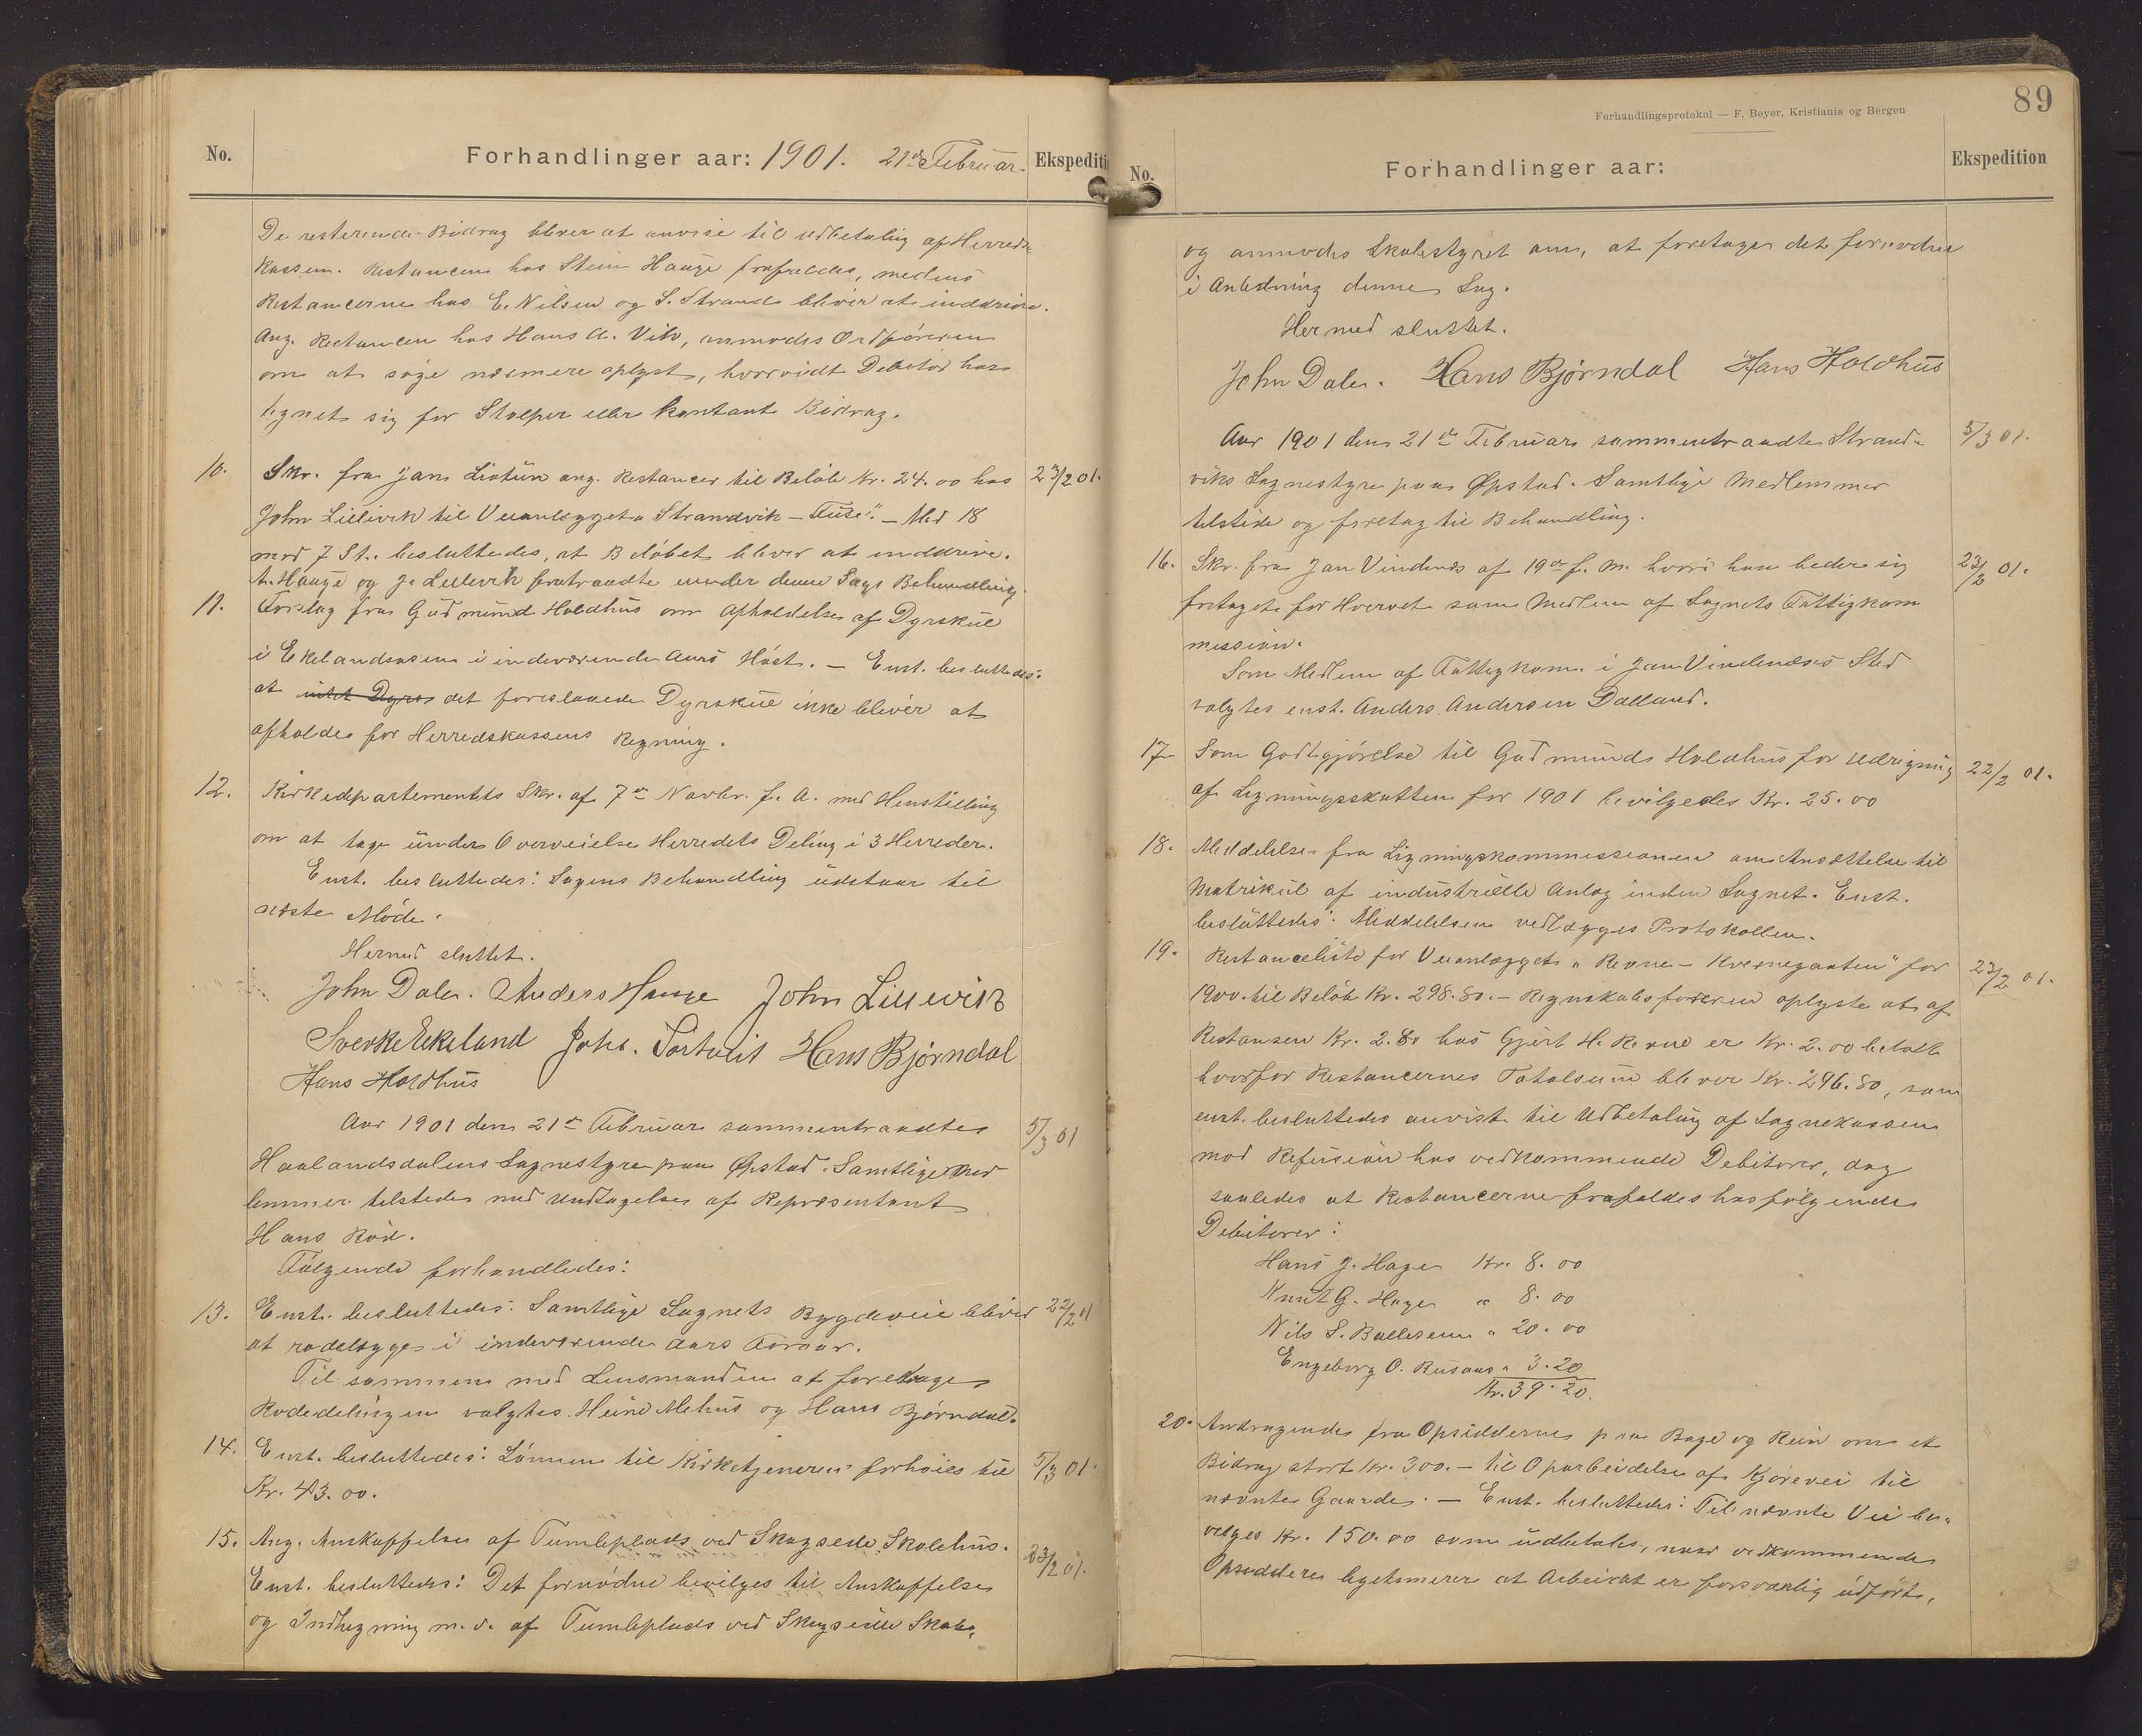 No.
Forhandlinger aar: 1901. 21de Februar.
Ekspediti
De resterende Bidrag bliver at anvise til udbetaling af Herreds-
kassen. Restancen hos Stein Hauge frafaldes, medens
Restancerne hos E. Nilsen og S. Strand bliver at inddrive.
Ang. Restancen hos Hans A. Vik, anmodes Ordføreren
om at søge nærmere oplyst, hvorvidt Debitor har
tegnet sig for Stolper eller kontant Bidrag.
10. Skr. fra Jans Liotun ang. Restancer til Beløb Kr. 24.00 hos 23/2 01.
John Lillevik til Veianlægget „Strandvik – Fuse“. – Med 18
mod 7 St. besluttedes, at Beløbet bliver at inddrive.
A. Hauge og J. Lillevik fratraadte under denne Sags Behandling.
11. Forslag fra Gudmund Holdhus om Afholdelse af Dyrskue
i Ekelandsosen i indeværende Aars Høst. – Enst. besluttedes:
at det foreslaaede Dyrskue ikke bliver at
afholdes for Herredskassens Regning.
12. Kirkedepartementets Skr. af 7de Novbr. f. A. med Henstilling
om at tage under Overveielse Herredets Deling i 3 Herreder.
Enst. besluttedes: Sagens Behandling udstaar til
næste Møde.
Hermed sluttet.
John Dale. Anders Hauge John Lillevik
Sverke Ekeland Johs. Tortveit Hans Bjørndal
Hans Holdhus
Aar 1901 den 21de Februar sammentraadte 5/3 01
Haalandsdalens Sognestyre paa Øpstad. Samtlige Med
lemmer tilstede med Undtagelse af Repræsentant
Hans Röd.
Følgende forhandledes:
13. Enst. besluttedes: Samtlige Sognets Bygdeveie bliver 22/2 01
at rodelægges i indeværende Aars Foraar.
Til sammen med Lensmanden at foretage
Rodedelingen valgtes Heine Mehus og Hans Bjørndal.
14. Enst. besluttedes: Lønnen til Kirketjeneren forhøies til 5/3 01.
Kr. 43.00.
15. Ang. Anskaffelse af Tumleplads ved Skogseide Skolehus. 23/2 01.
Enst. besluttedes: Det fornødne bevilges til Anskaffelse
og Indhegning m.v. af Tumleplads ved Skogseide Skole,
89
Forhandlingsprotokol — F. Beyer, Kristiania og Bergen
No.
Forhandlinger aar:
Ekspedition
og anmodes Skolestyret om, at foretage det fornødne
i Anledning denne Sag.
Hermed sluttet.
John Dale. Hans Bjørndal Hans Holdhus
Aar 1901 den 21de Februar sammentraadte Strand- 5/3 01.
viks Sognestyre paa Øpstad. Samtlige Medlemmer
tilstede og foretog til Behandling.
16. Skr. fra Jan Vindenes af 19de f. M. hvori han beder sig 23/2 01.
fritaget for Hvervet som Medlem af Sognets Fattigkom
mission.
Som Medlem af Fattigkom. i Jan Vindenes's Sted
valgtes enst. Anders Andersen Dalland.
17. Som Godtgjørelse til Gudmund Holdhus for Udregning 22/2 01.
af Ligningsskatten for 1901 bevilgedes Kr. 25.00
18. Meddelelse fra Ligningskommissionen om Ansættelse til
Matrikul af industrielle Anlæg inden Sognet. Enst.
besluttedes: Meddelelsen vedlægges Protokollen.
19. Restanceliste for Veianlægget „Revne – Kvernegaaten“ for 23/2 01.
1900 til Beløb Kr. 298.80. – Regnskabsføreren oplyste at af
Restansen Kr. 2.80 hos Gjert H. Revne er Kr. 2.00 betalt
hvorfor Restancernes Totalsum bliver Kr. 296.80, som
enst. besluttedes anvist til Udbetaling af Sognekassen
mod Refusion hos vedkommende Debitorer, dog
saaledes at Restancerne frafaldes hos følgende
Debitorer:
Hans J. Hage Kr. 8.00
Knut G. Hage „ 8.00
Nils S. Ballesen „ 20.00
Engeborg O. Rusaas „ 3.20
Kr. 39.20.
20. Andragende fra Opsidderne paa Bage og Rein om et
Bidrag stort Kr. 300. – til Oparbeidelse af Kjørevei til
nævnte Gaarde. – Enst. besluttedes: Til nævnte Vei be-
vilges Kr. 150.00 som udbetales, naar vedkommende
Opsiddere legitimerer at Arbeidet er forsvarlig udført,